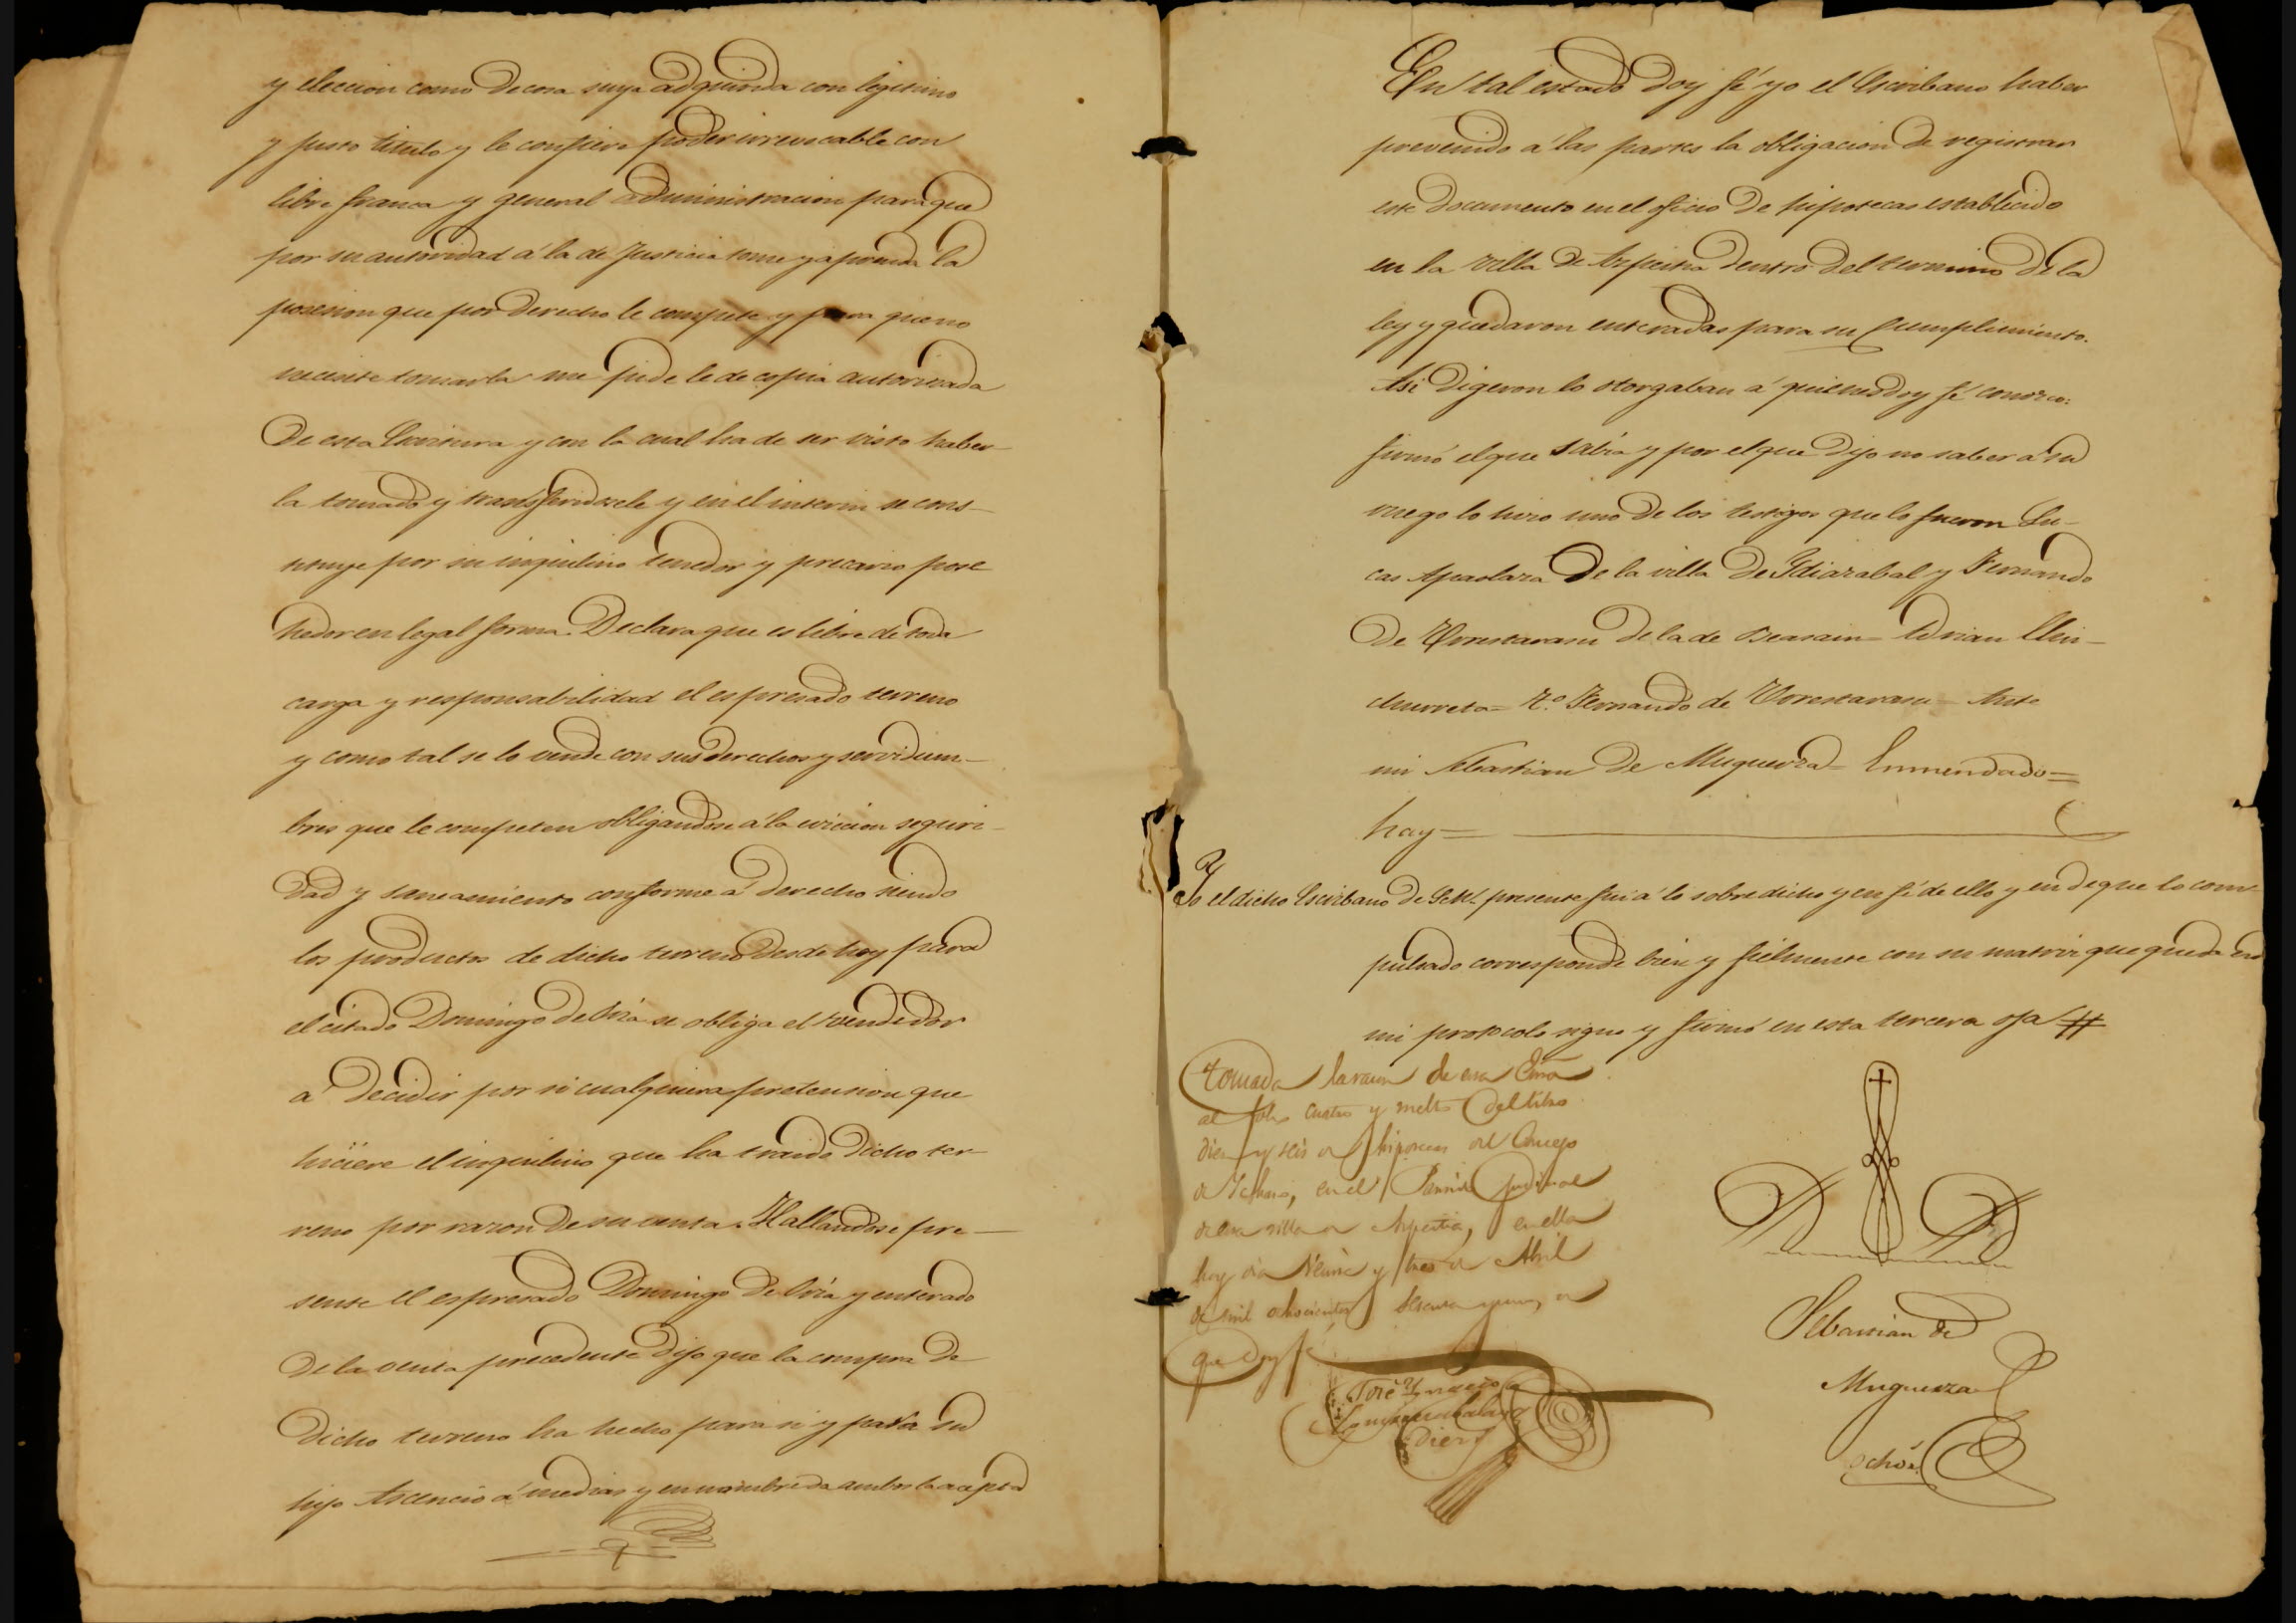 y eleccion como de cosa suya adquirida con legitimo
y justo titulo y le confiere poder irrevocable con
libre franca y general administracion para que
por su autoridad á la de Justicia tome y aprenda la
posesion que por derecho le compete y para que no
necesite tomarla me pide le de copia autorizada
de esta Escritura y con la cual ha de ser visto haber-
la tomado y transferidosele y en el interin se cons-
tituye por su inquilino tenedor y precario pose
hedor en legal forma. Declara que es libre de toda
carga y responsabilidad el espresado terreno
y como tal se lo vende con sus derechos y servidum-
bres que le competen obligandose á la eviccion seguri-
dad y saneamiento conforme a derecho siendo
los productos de dicho terreno desde hoy para
el citado Domingo de Oria se obliga el vendedor
a decidir por si cualquiera pretension que
hiciere el inquilino que ha traido dicho ter-
reno por razon de su renta. Hallandose pre-
sente el espresado Domingo de Oria y enterado
de la venta precedente dijo que la compra de
dicho terreno ha hecho para si y para su
hijo Ascencio á medias y en nombre de ambos la acepta
En tal estado doy fé yo el Escribano haber
prevenido á las partes la obligacion de registrar
este documento en el oficio de hipotecas establecido
en la villa de Azpeitia dentro del termino de la
ley y quedaron enteradas para su cumplimiento.
Asi digeron lo otorgaban á quienes doy fé conozco:
firmó el que sabia y por el que dijo no saber á su
ruego lo hizo uno de los testigos que lo fueron Lu-
cas Apaolaza de la villa de Ydiazabal y Fernando
de Yorestarasu de la de Beasain= Adrian
churreta= T.º Fernando de Yorestarasu= Ante
mi Sebastian de Muguerza= Enmendado=
hay=
Yo el dicho Escribano de S.M. presente fui á lo sobredicho y en fé de ello y en de que lo com-
pulsado corresponde bien y fielmente con su matriz que queda en
mi protocolo signo y firmo en esta tercera oja
Tomada la razon de esa Esra
al folio cuatro y del libro
diez y seis de hipotecas del Concejo
de, en el Partido judicial
de esa villa de Azpeitia, en ella
hoy dia veinte y tres de Abril
de mil ochocientos sesenta y uno, de
que doy fé
José Ygnacio
Diez
Sebastian de
Muguerza
Ochoa